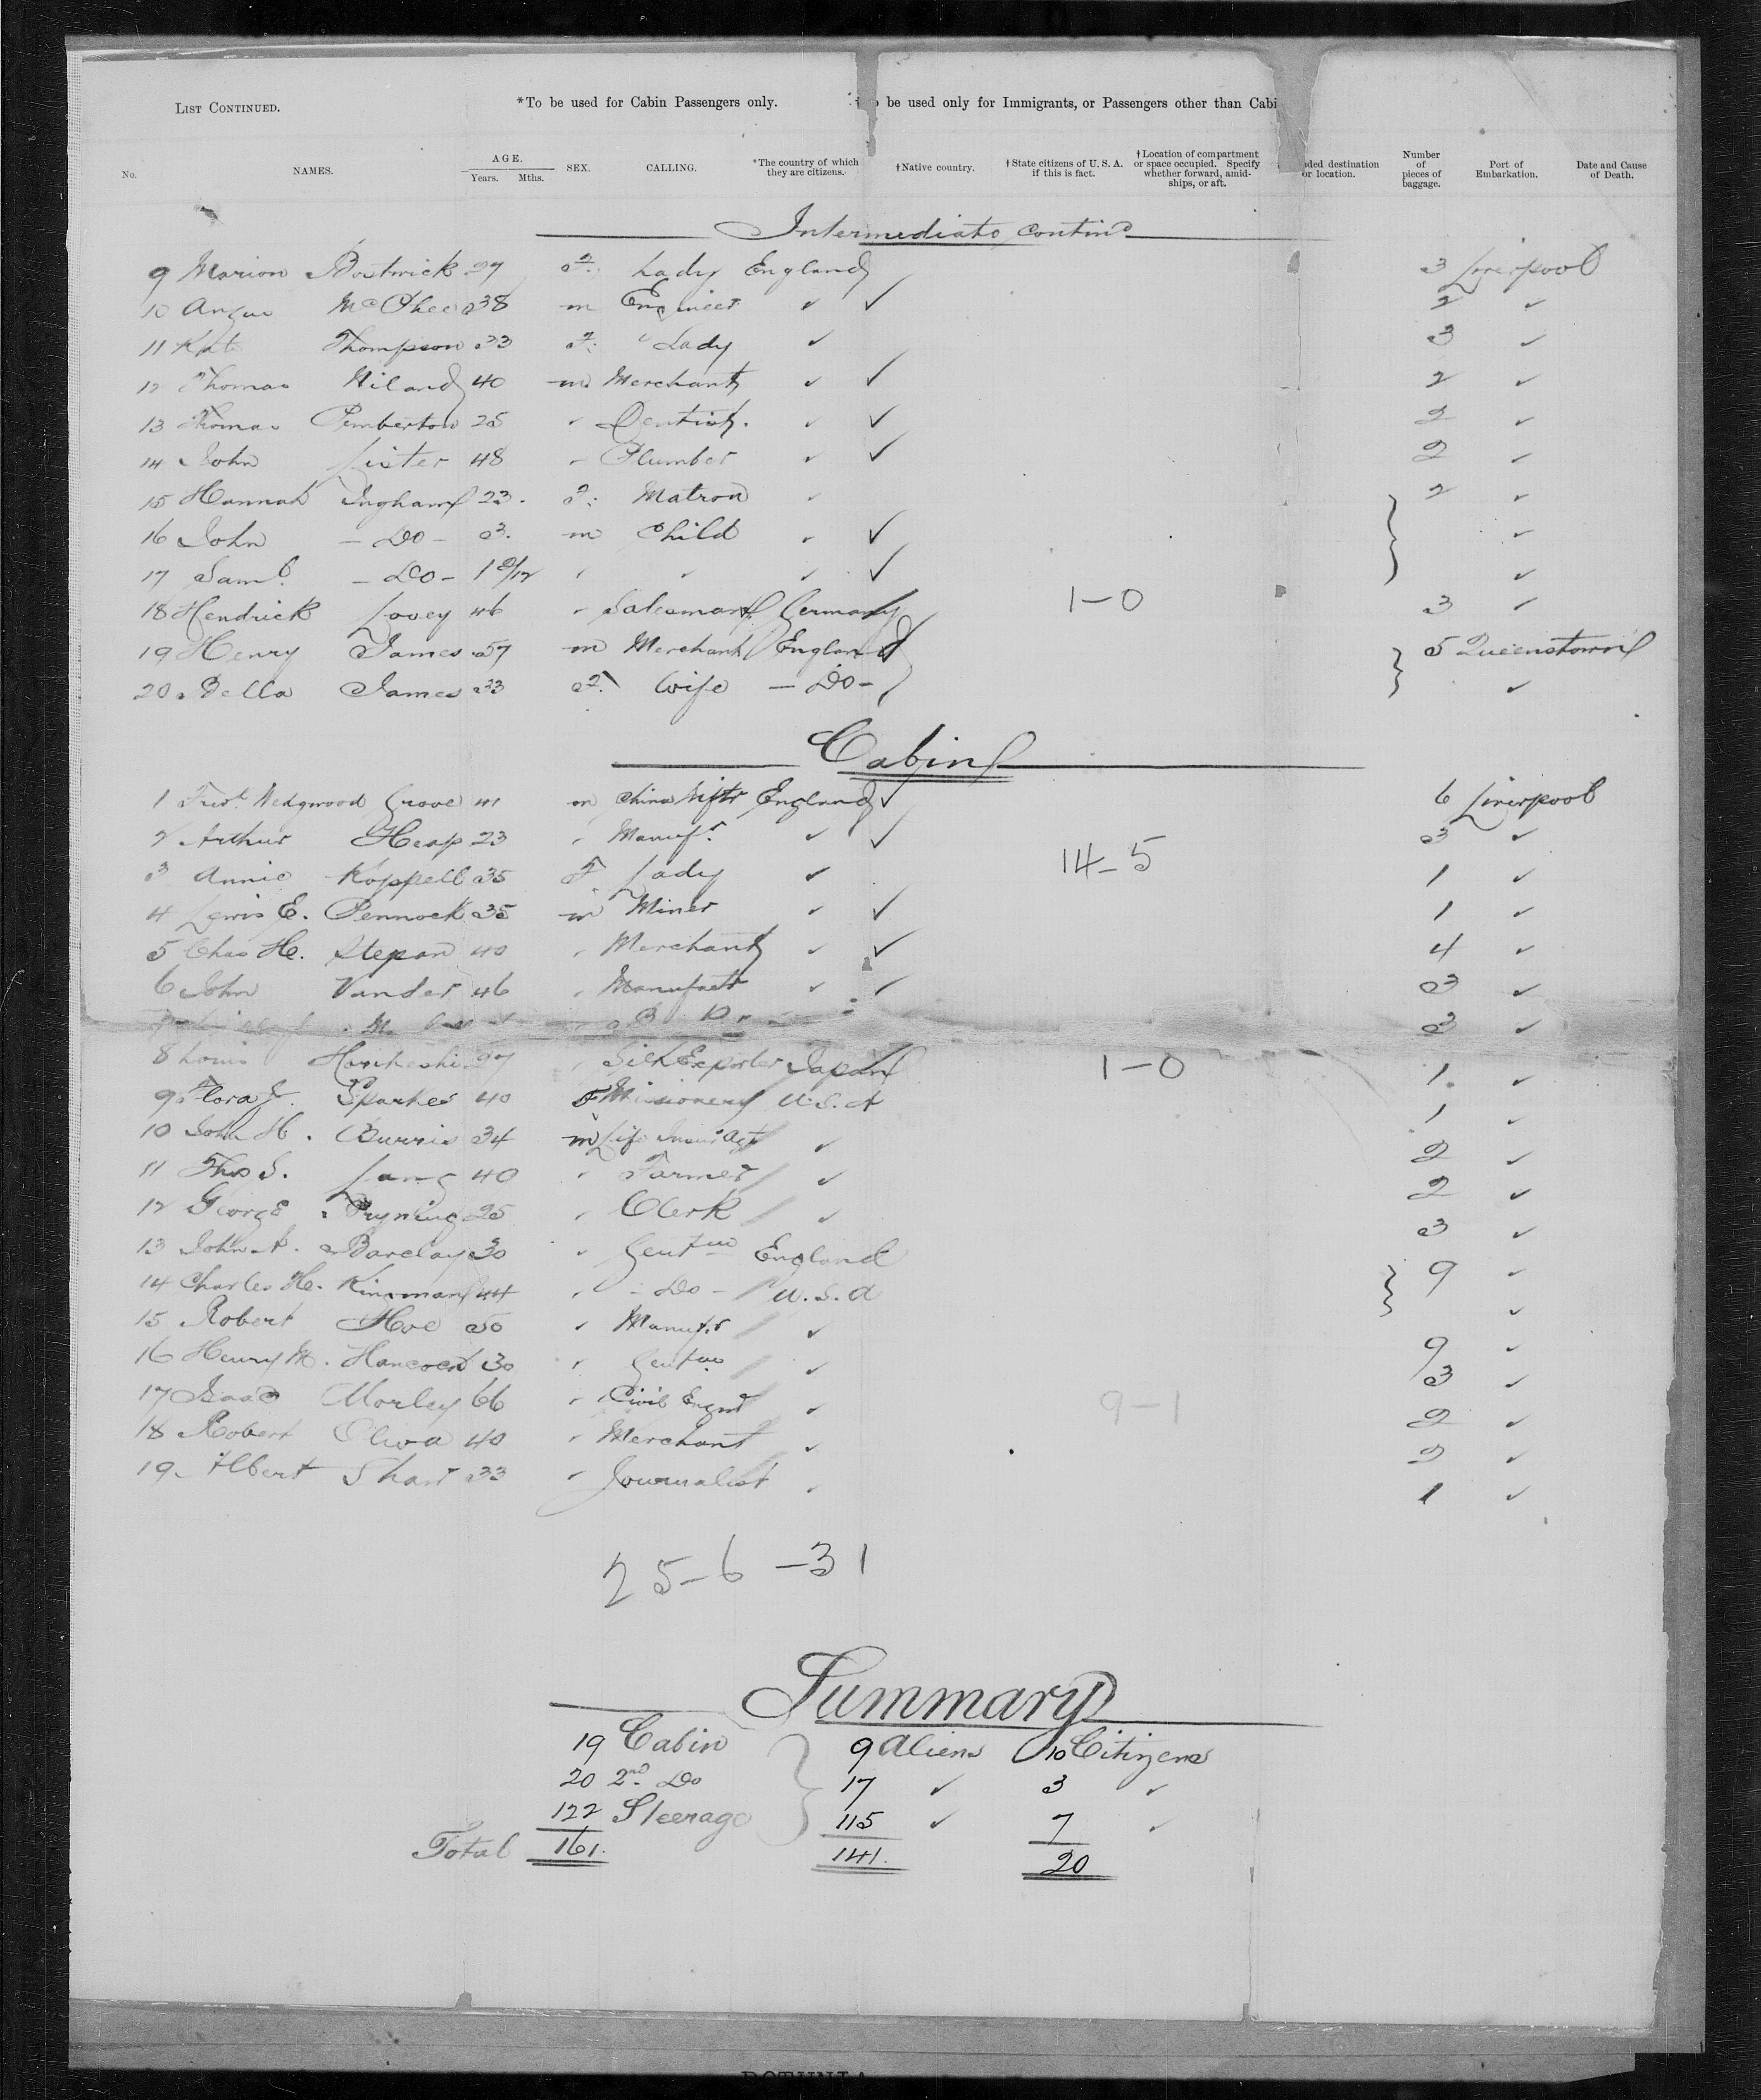 LIST CONTINUED. *To be used for Cabin Passengers only. be used only for Immigrants, or Passengers other than Cabi
No. NAMES. AGE. Years. Mths. SEX. CALLING. *The country of which they are citizens. †Native country. †State citizens of U. S. A. if this is fact. †Location of compartment or space occupied. Specify whether forward, amidships, or aft. ded destination or location. Number of pieces of baggage. Port of Embarkation. Date and Cause of Death.
Intermediate contind
9 Marion Bostwick 27 F. Lady England 3 Liverpool
10 Angus McPhee 38 m Engineer ✓ ✓ 2 ✓
11 Kat Thompson 33 F. Lady ✓ 3 ✓
12 Thomas Hiland 40 m Merchant ✓ ✓ 2 ✓
13 Thomas Pemberton 25 " Dentist. ✓ ✓ 2 ✓
14 John Lister 48 " Plumber ✓ ✓ 2 ✓
15 Hannah Ingham 23. F. Matron ✓ 2 ✓
16 John - Do - 3. m Child ✓ ✓ ✓
17 Saml. - Do - 1 9/12 " " ✓ ✓ ✓
18 Hendrick Lovey 46 " Salesman Germany 1-0 3 ✓
19 Henry James 57 m Merchant England 5 Queenstown
20 Bella James 33 F. Wife - Do - ✓
Cabin
1 Wedgwood Grove 41 m China England ✓ 6 Liverpool
2 Arthur Heap 23 " Manufr. ✓ ✓ 3 ✓
3 Annie Koppell 35 F Lady ✓ 14-5 1 ✓
4 Lewis E. Pennock 35 m Miner ✓ ✓ 1 ✓
5 Chas H. Stepan 40 " Merchant ✓ ✓ 4 ✓
6 John Vander 46 " Manufactr ✓ ✓ 3 ✓
3 ✓
8 Louis 27 " Silk Exporter Japan 1-0 1. ✓
9 Flora J. Sparkes 40 F Missionery U.S.A 1 ✓
10 John H. Burris 34 m Life Insur Agt ✓ 2 ✓
11 Thos S. Lang 40 " Farmer ✓ 2 ✓
12 George Pryning 25 " Clerk ✓ 3 ✓
13 John A. Barclay 30 " Gentm England 9 ✓
14 Charles H. Kinsman 44 " - Do - U.S.A ✓
15 Robert Hoe 50 " Manufr ✓ 9 ✓
16 Henry M. Hancock 30 " Gentm ✓ 3 ✓
17 Isaac Morley 66 " Civil Engnr ✓ 9-1 2 ✓
18 Robert Oliva 40 " Merchant ✓ 2 ✓
19 Albert Shaw 33 " Journalist ✓ 1 ✓
25-6-31
Summary
19 Cabin 9 Aliens 10 Citizens
20 2nd Do 17 ✓ 3 ✓
122 Steerage 115 ✓ 7 ✓
Total 161. 141. 20